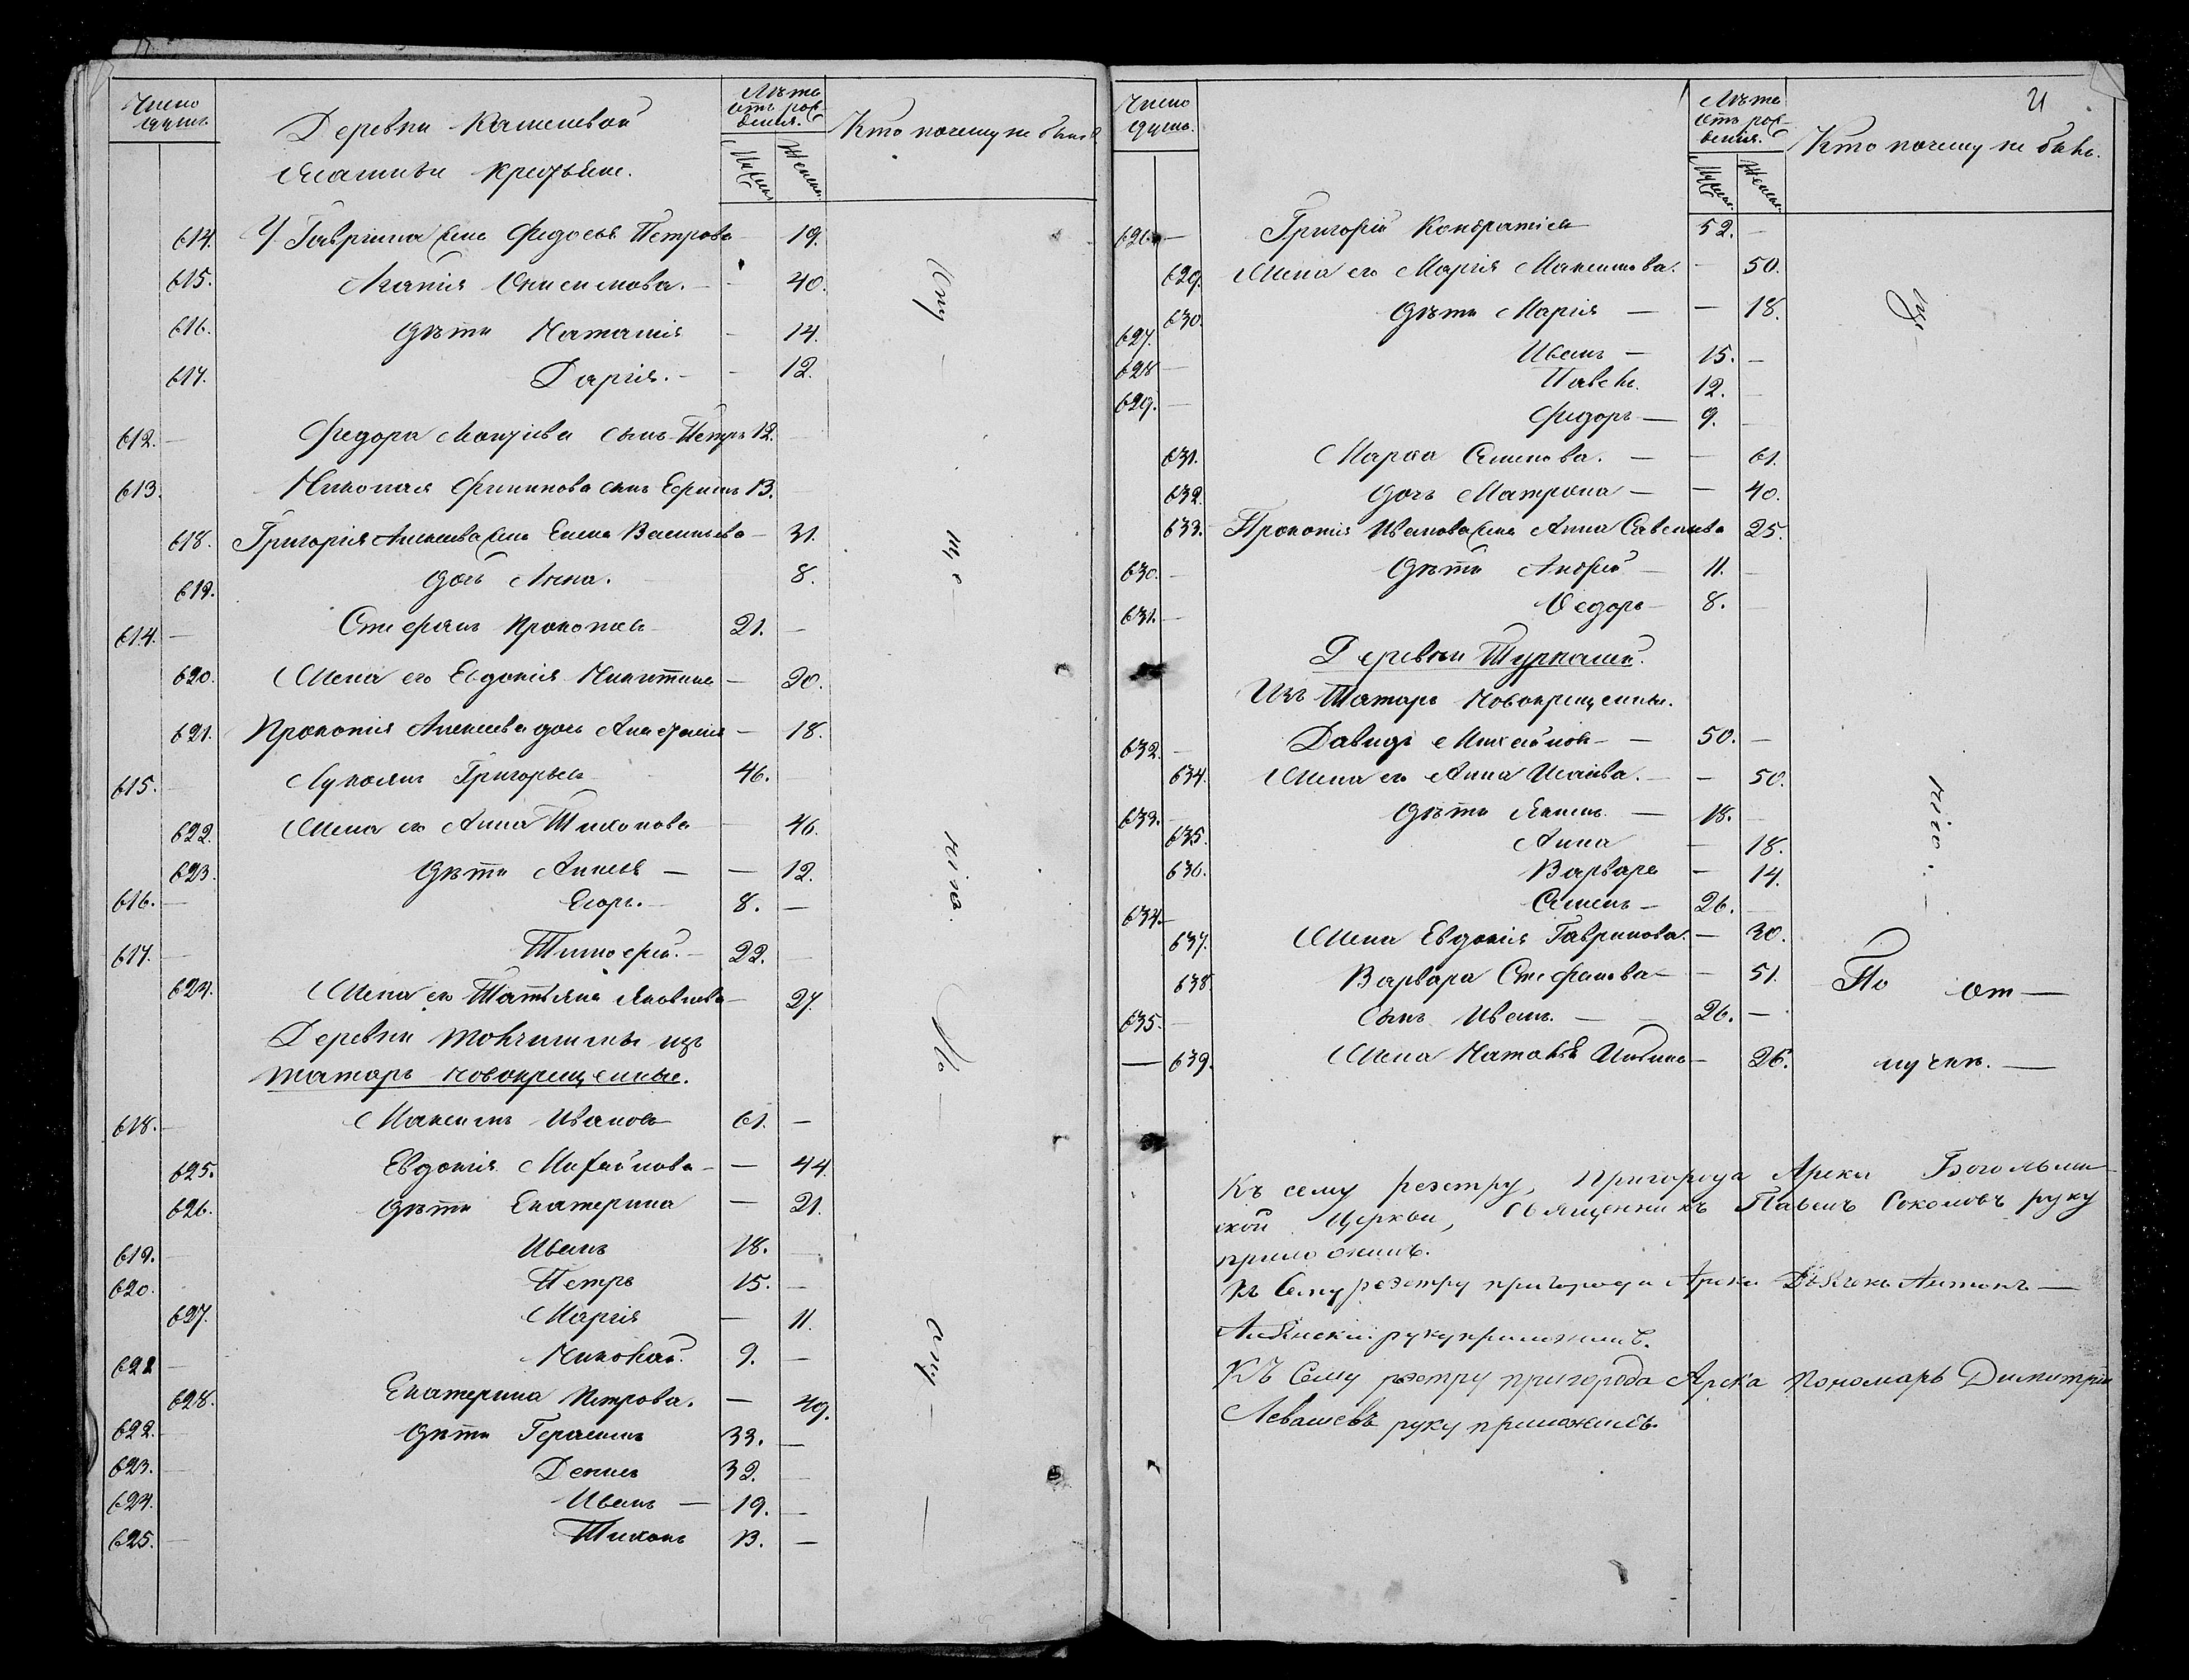 Число душъ.
Деревни Камешвой
ясашные крестьяне.
Лѣта отъ рождения.
Мужск. Женск.
Кто почему не былъ.
614. У Гавриила жена Федосья Петрова — 19.
615. Агапія Онисимова. — 40.
616. дѣти Наталія — 14.
617. Дарія. — 12.
612. — Федора Моисіева сынъ Петръ 12.
613. Николая Филипова сынъ Ефимъ 13.
618. Григорія Алексѣева жена Елена Васильева — 31.
619. дочь Анна. 8.
614. — Стефанъ Прокопьевъ 21. —
620. Жена его Евдокія Никитина — 20.
621. Прокопія Алексѣева дочь Анастасія — 18.
615. Лукоянъ Григорьевъ 46.
622. Жена его Анна Тихонова 46.
623. дѣти — — 12.
616. — Егоръ. — 8. —
617. — Тимофей. — 22.
624. Жена его Татьяна Яковлева — 27.
Деревни Товчигины изъ
татаръ новокрещенные.
618. — Максимъ Ивановъ 61. —
625. Евдокія Михайлова — — 44.
626. дѣти Екатерина — 21.
619. — Иванъ 18.
620. Петръ 15. —
627. Марія — 11.
621 — Николай. 9. —
628. Екатерина Петрова. — 49.
622. — дѣти Герасимъ 33. —
623. — Денисъ 32.
624. Иванъ — 19. —
625. — Тихонъ 13. —
21
Число душъ.
Лѣта отъ рождения.
Мужск. Женск.
Кто почему не былъ.
626. — Григорій Кондратьевъ 52. —
629. Жена его Марія Максимова. — 50.
630. дѣти Марія — — 18.
627. Иванъ — 15. —
628 — Павелъ. 12. —
629. — Федоръ — 9. —
631. Марѳа Семенова. — — 61.
632. дочь Матрона — — 40.
633. Прокопія Иванова жена Анна Савельева 25.
630. — дѣти Андрей — 11. —
631. — Ѳедоръ — 8. —
Деревни Турнаши.
Изъ Татаръ новокрещенные.
632. — Давидъ Михайловъ — — 50. —
634. Жена его Анна Исаева. — — 50.
633. — дѣти Якимъ. — 18. —
635. Анна — 18.
636. Варвара — 14.
634. — Семенъ — 26. —
637. Жена Евдокія Гаврилова. — 30.
638. Варвара Стефанова — — 51.
По от —
635. — сынъ Иванъ. — 26. —
— 639. Жена Наталья — 26.
лучкѣ. —
Къ сему реэстру, пригорода Арска Богоявлен
ской Церкви, Священникъ Павелъ Соколовъ руку
приложилъ.
Къ Сему реэстру пригорода Арска Дьячекъ Антонъ —
руку приложилъ.
Къ Сему реэстру пригорода Арска пономарь Димитрій
Левашевъ руку приложилъ.